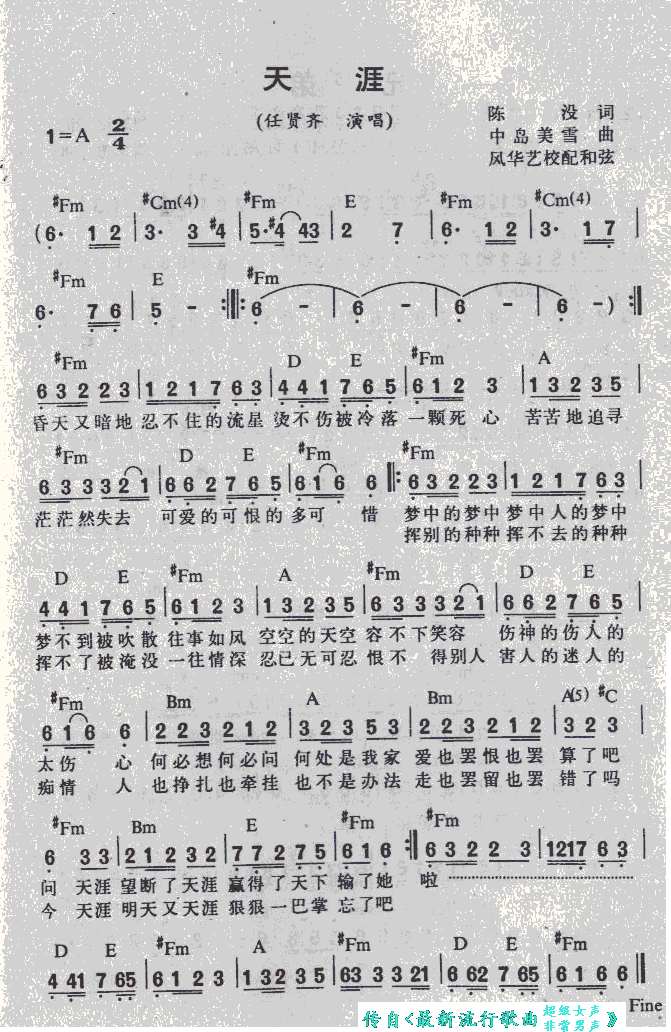 天 涯
(任贤齐 演唱)
1=A 2/4
陈 没 词
中岛美雪 曲
风华艺校配和弦
#Fm #Cm(4) #Fm E #Fm #Cm(4)
(6· 1 2 | 3· 3 #4 | 5·#4 43 | 2 7 | 6· 1 2 | 3· 1 7 |
#Fm E #Fm
6· 7 6 | 5 - :||: 6 - | 6 - | 6 - | 6 -) :||
#Fm D E #Fm A
6 3 2 2 2 3 | 1 2 1 7 6 3 | 4 4 1 7 6 5 | 6 1 2 3 | 1 3 2 3 5 |
昏天又暗地 忍不住的流星 烫不伤被冷落 一颗死心 苦苦地追寻
#Fm D E #Fm #Fm
6 3 3 3 3 2 1 | 6 6 2 7 6 5 | 6 1 6 6 ||: 6 3 2 2 2 3 | 1 2 1 7 6 3 |
茫茫然失去 可爱的可恨的 多可 惜 梦中的梦中 梦中人的梦中
挥别的种种 挥不去的种种
D E #Fm A #Fm D E
4 4 1 7 6 5 | 6 1 2 3 | 1 3 2 3 5 | 6 3 3 3 3 2 1 | 6 6 2 7 6 5 |
梦不到被吹散 往事如风 空空的天空 容不下笑容 伤神的伤人的
挥不了被淹没 一往情深 忍已无可忍 恨不 得别人 害人的迷人的
#Fm Bm A Bm A(5) #C
6 1 6 6 | 2 2 3 2 1 2 | 3 2 3 5 3 | 2 2 3 2 1 2 | 3 2 3 |
太伤 心 何必想何必问 何处是我家 爱也罢恨也罢 算了吧
痴情 人 也挣扎也牵挂 也不是办法 走也罢留也罢 错了吗
#Fm Bm E #Fm #Fm
6 3 3 | 2 1 2 3 2 | 7 7 2 7 5 | 6 1 6 :|| 6 3 2 2 3 | 1217 6 3 |
问 天涯 望断了天涯 赢得了天下 输了她 啦
今 天涯 明天又天涯 狠狠一巴掌 忘了吧
D E #Fm A #Fm D E #Fm
4 41 7 65 | 6 1 2 3 | 1 32 3 5 | 63 3 3 21 | 6 62 7 65 | 6 1 6 6 ||
Fine
传自《最新流行歌曲 超级女声 非常男声 》